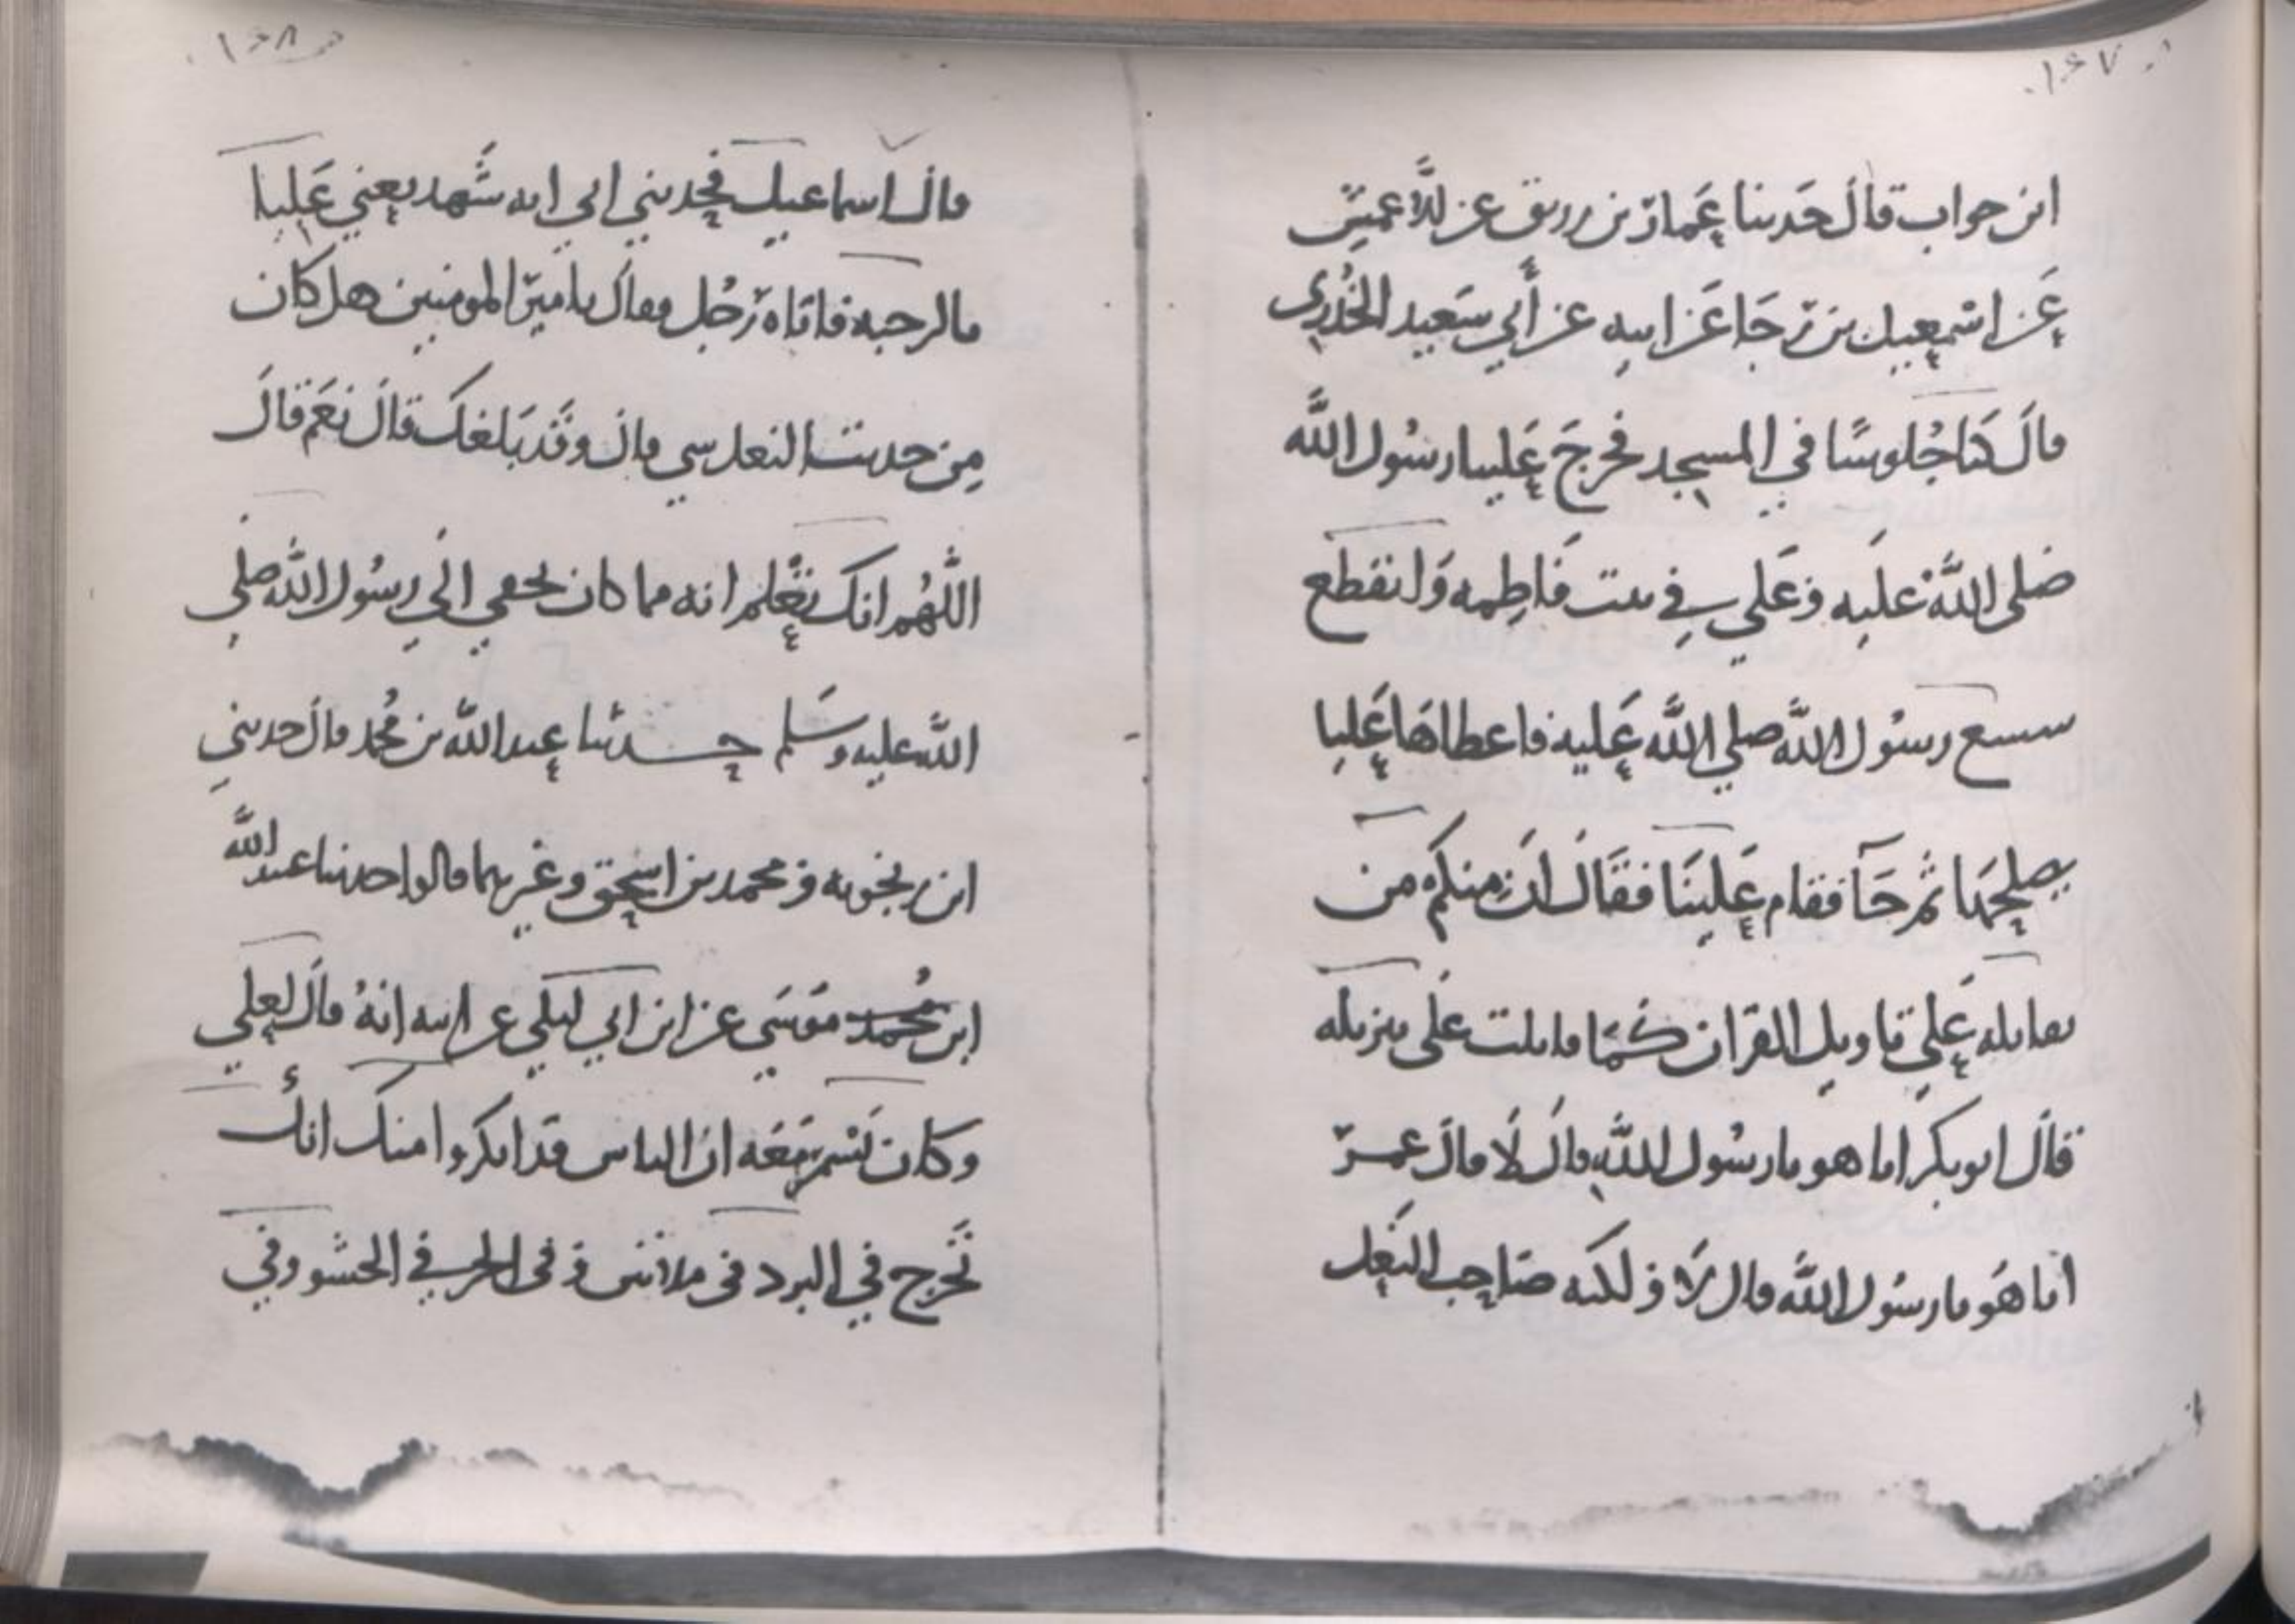 ١٤٧
ابن جواب قال حدثنا عمار بن رزيق عن الأعمش
عن اسمعيل بن رجا عن ابيه عن أبي سعيد الخدري
قال كنا جلوسا في المسجد فخرج علينا رسول الله
صلى الله عليه وعلي في بيت فاطمه وانقطع
شسع رسول الله صلي الله عليه فاعطاها عليا
يصلحها ثم جآ فقام علينا فقال ان منكم من
يقاتله علي تاويل القران كما قاتلت على تنزيله
قال ابو بكر انا هو يا رسول الله قال لا قال عمر
انا هو يا رسول الله قال لا ولكنه صاحب النعل
١٤٨
قال اسماعيل فحدثني ابي انه شهد يعني عليا
بالرحبه فاتاه رجل فقال يا امير المومنين هل كان
من حديث النعل شي قال وقد بلغك قال نعم قال
اللهم انك تعلم انه مما كان يخفي الي رسول الله صلي
الله عليه وسلم حدثنا عبد الله بن محمد قال حدثني
ابن زنجويه ومحمد بن اسحق وغيرهما قالوا حدثنا عبد الله
ابن محمد موسى عن ابن ابي ليلي عن ابيه انه قال لعلي
وكان يسمر معه ان الناس قد انكروا منك انك
تخرج في البرد في ملاتين وفي الحر في الحشو وفي